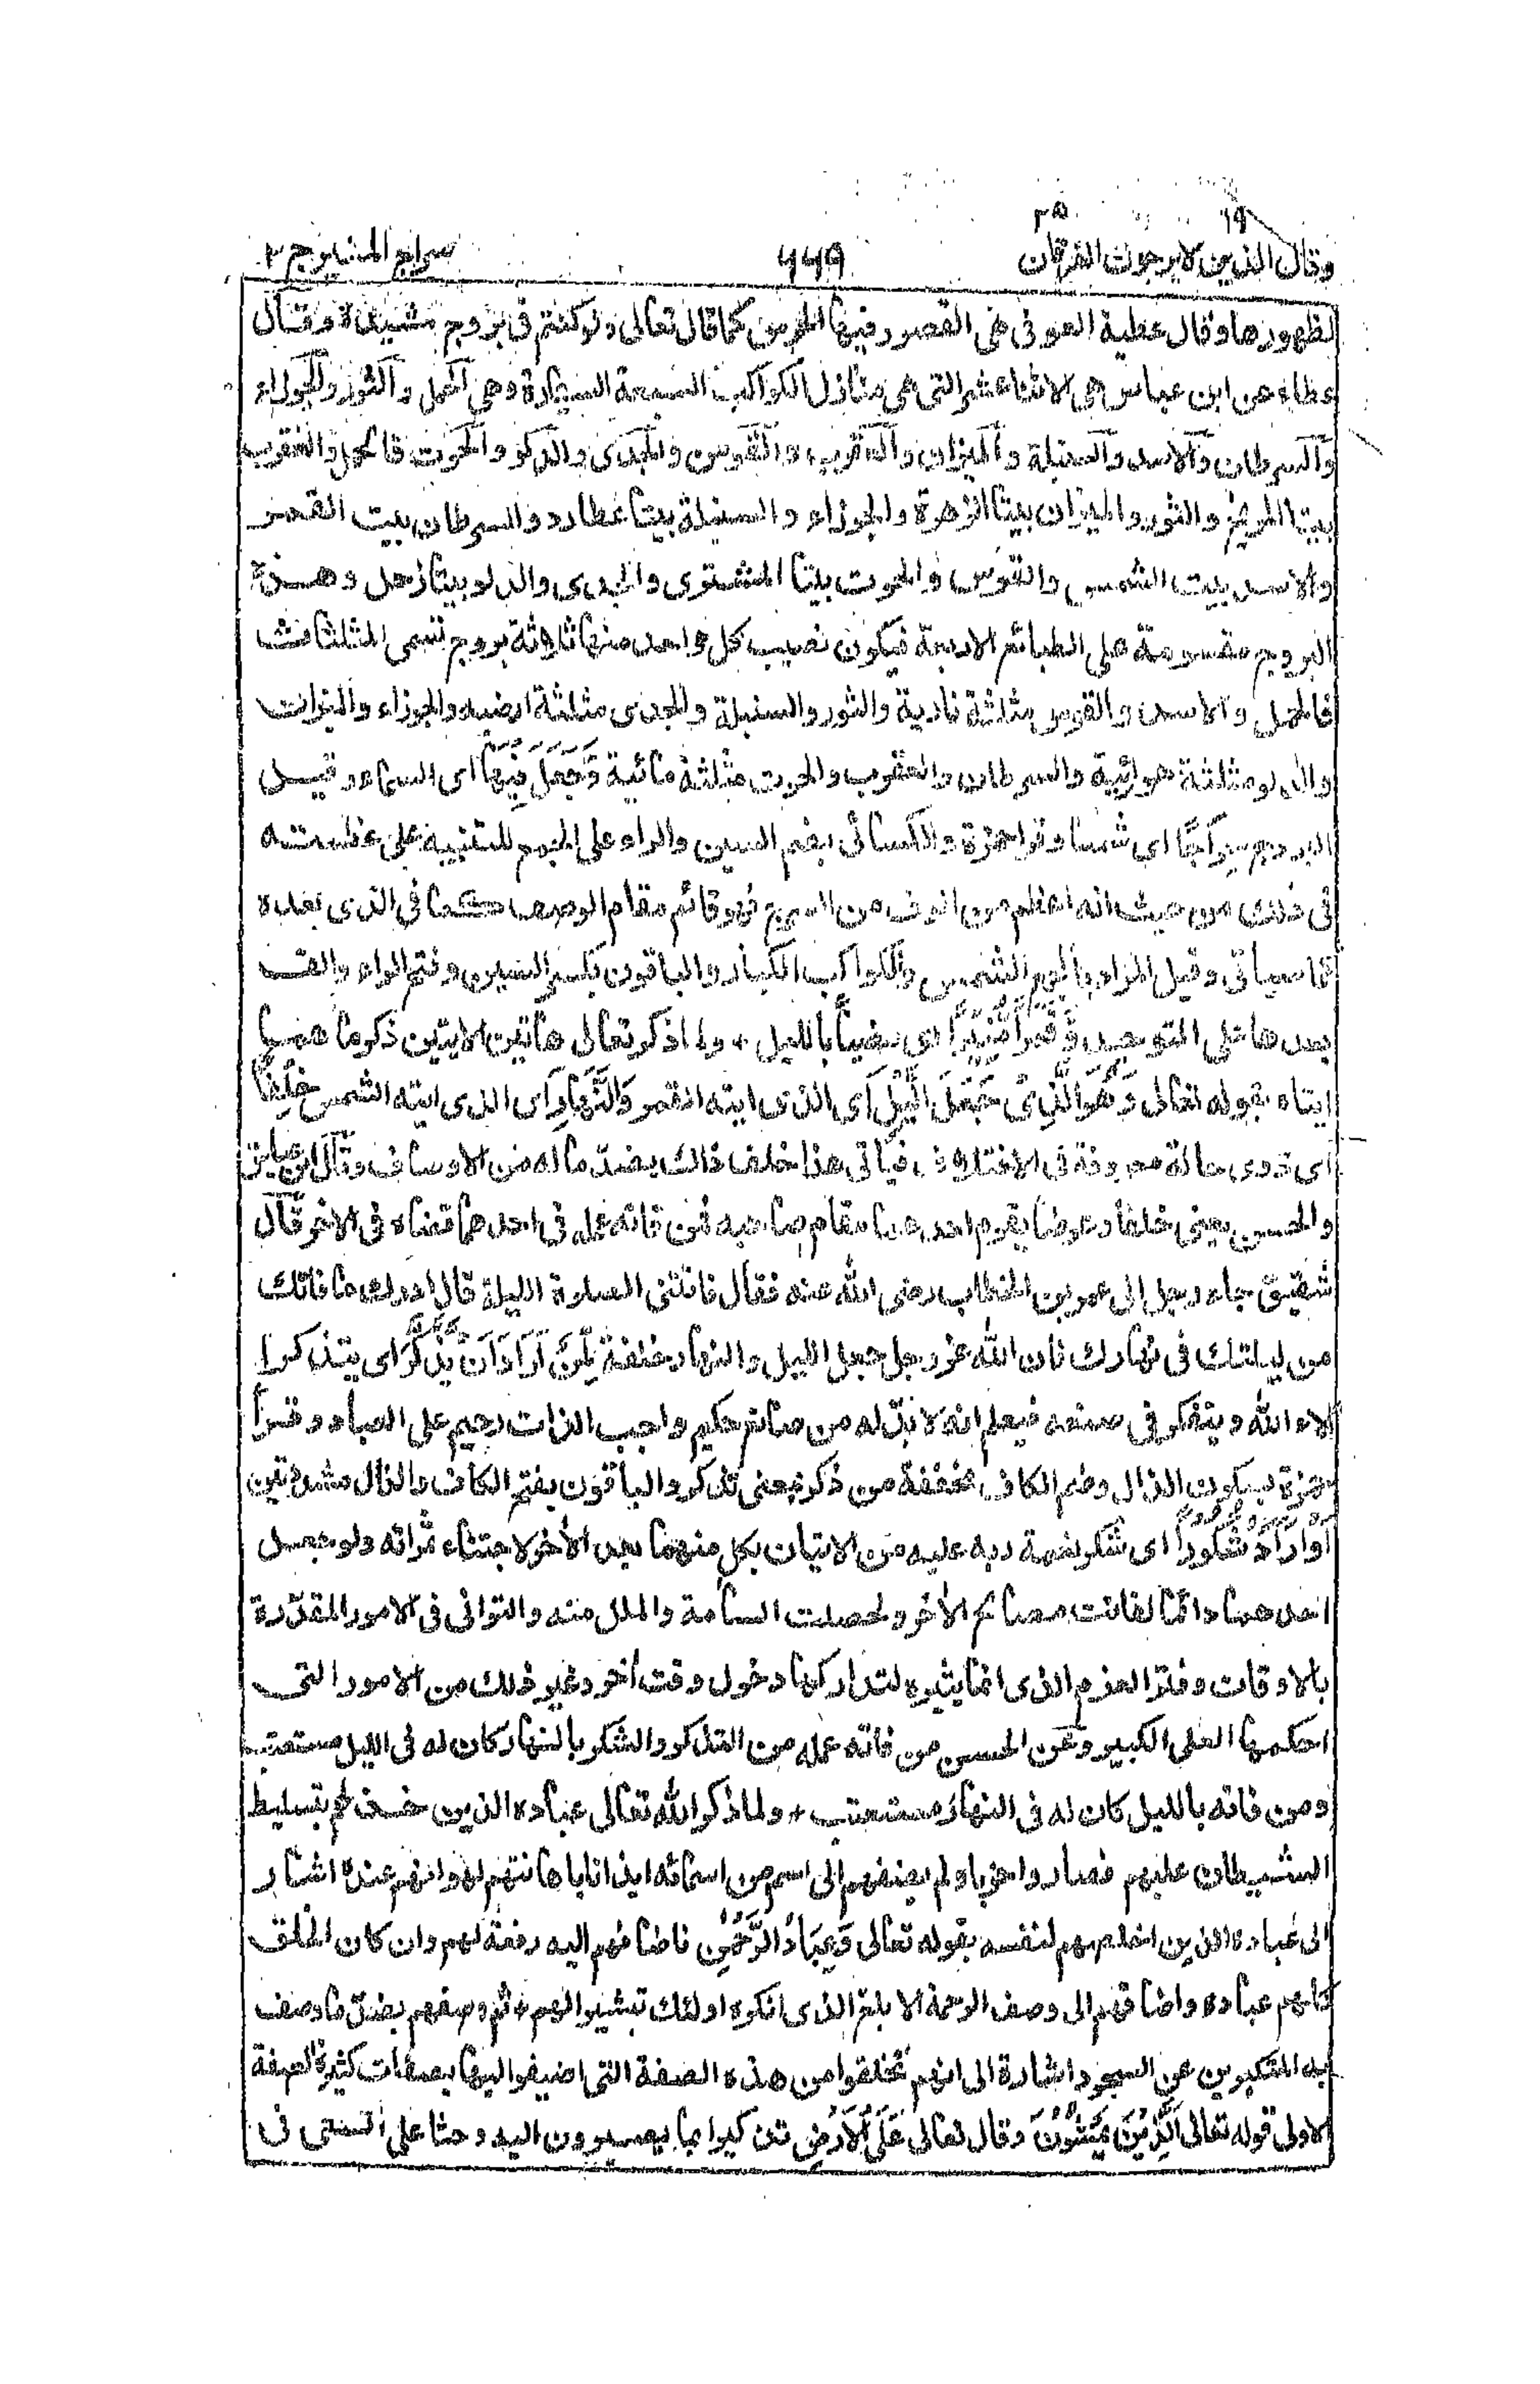 ١٩ ٢٥
وقال الذين لا يرجون الفرقان ٦٦٩ سراج المنير ج ٢
لظهورها وقال عطية العوفى هى القصور فيها الحرس كما قال تعالى ولو كنتم فى بروج مشيدة وقال
عطاء عن ابن عباس هى الاثنا عشر التى هى منازل الكواكب السبعة السيارة وهى الحمل والثور والجوزاء
والسرطان والاسد والسنبلة والميزان والعقرب والقوس والجدى والدلو والحوت فالحمل والعقرب
بيتا المريخ والثور والميزان بيتا الزهرة والجوزاء والسنبلة بيتا عطارد والسرطان بيت القمر
والاسد بيت الشمس والقوس والحوت بيتا المشترى والجدى والدلو بيتا زحل وهذه
البروج مقسومة على الطبائع الاربعة فيكون نصيب كل واحد منها ثلاثة بروج تسمى المثلثات
فالحمل والاسد والقوس مثلثة نارية والثور والسنبلة والجدى مثلثة ارضيه والجوزاء والميزان
والدلو مثلثة هوائية والسرطان والعقرب والحوت مثلثة مائية وَّجَعَلَ فِيْهَا اى السماء وقيل
البروج سِرَاجًا اى شمسا وقرا حمزة والكسائى بضم السين والراء على الجمع للتنبيه على عظمته
فى ذلك من حيث انه اعظم من الوف من السرج فهو قائم مقام الوصف كما فى الذى بعده
كما سياتى وقيل المراد بالجمع الشمس والكواكب الكبار والباقون بكسر السين وفتح الراء والف
بعدها على التوحيد وَّقَمَرًا مُّنِيْرًا اى مضيئا بالليل ٭ ولما ذكر تعالى هاتين الايتين ذكر ما هما
ايتاه بقوله تعالى وَهُوَ الَّذِىْ جَعَلَ الَّيْلَ اى الذى ايته القمر وَالنَّهَارَ اى الذى ايته الشمس خِلْفَةً
اى ذوى حالة معروفة فى الاختلاف فياتى هذا خلف ذلك بضد ما له من الاوصاف وقال ابن عباس
والحسن يعنى خلفا وعوضا يقوم احدهما مقام صاحبه فمن فاته عمله فى احدهما قضاه فى الاخر قال
شقيق جاء رجل الى عمر بن الخطاب رضى الله عنه فقال فاتتنى الصلوة الليلة قال ادرك ما فاتك
من ليلتك فى نهارك فان الله عز وجل جعل الليل والنهار خلفة لِّمَنْ اَرَادَ اَنْ يَّذَّكَّرَ اى يتذكر
الاء الله ويتفكر فى صنعه فيعلم انه لا بد له من صانع حكيم واجب الذات رحيم على العباد وقرأ
حمزة بسكون الذال وضم الكاف مخففة من ذكر بمعنى تذكر والباقون بفتح الكاف والذال مشددتين
اَوْ اَرَادَ شُكُوْرًا اى شكر نعمة ربه عليه من الاتيان بكل منهما بعد الأخر لاجتناء ثمراته ولو جعل
احدهما دائما لفاتت مصالح الأخر ولحصلت السأمة والملل منه والتوانى فى الامور المقدّرة
بالاوقات وفتر العزم الذى انما يثيره لتداركها دخول وقت أخر وغير ذلك من الامور التى
احكمها العلى الكبير وعن الحسن من فاته عمله من التذكر والشكر بالنهار كان له فى الليل مستعتب
ومن فاته بالليل كان له فى النهار مستعتب ٭ ولما ذكر الله تعالى عباده الذين خذلهم بتسليط
الشيطان عليهم فصاروا حزبا ولم يضفهم الى اسم من اسمائه ايذانا باهانتهم لهوانهم عنده اشار
الى عباده الذين اخلصهم لنفسه بقوله تعالى وَعِبَادُ الرَّحْمٰنِ فاضافهم اليه رفعة لهم وان كان الخلق
كلهم عباده واضافهم الى وصف الرحمة الابلغ الذى انكره اولئك تبشيرا لهم ٭ ثم وصفهم بضد ما وصف
به المتكبرين عن السجود اشارة الى انهم تخلقوا من هذه الصفة التى اضيفوا اليها بصفات كثيرة الصفة
الاولى قوله تعالى الَّذِيْنَ يَمْشُوْنَ وقال تعالى عَلَى الْاَرْضِ تذكيرا بما يصيرون اليه وحثا على السعى فى